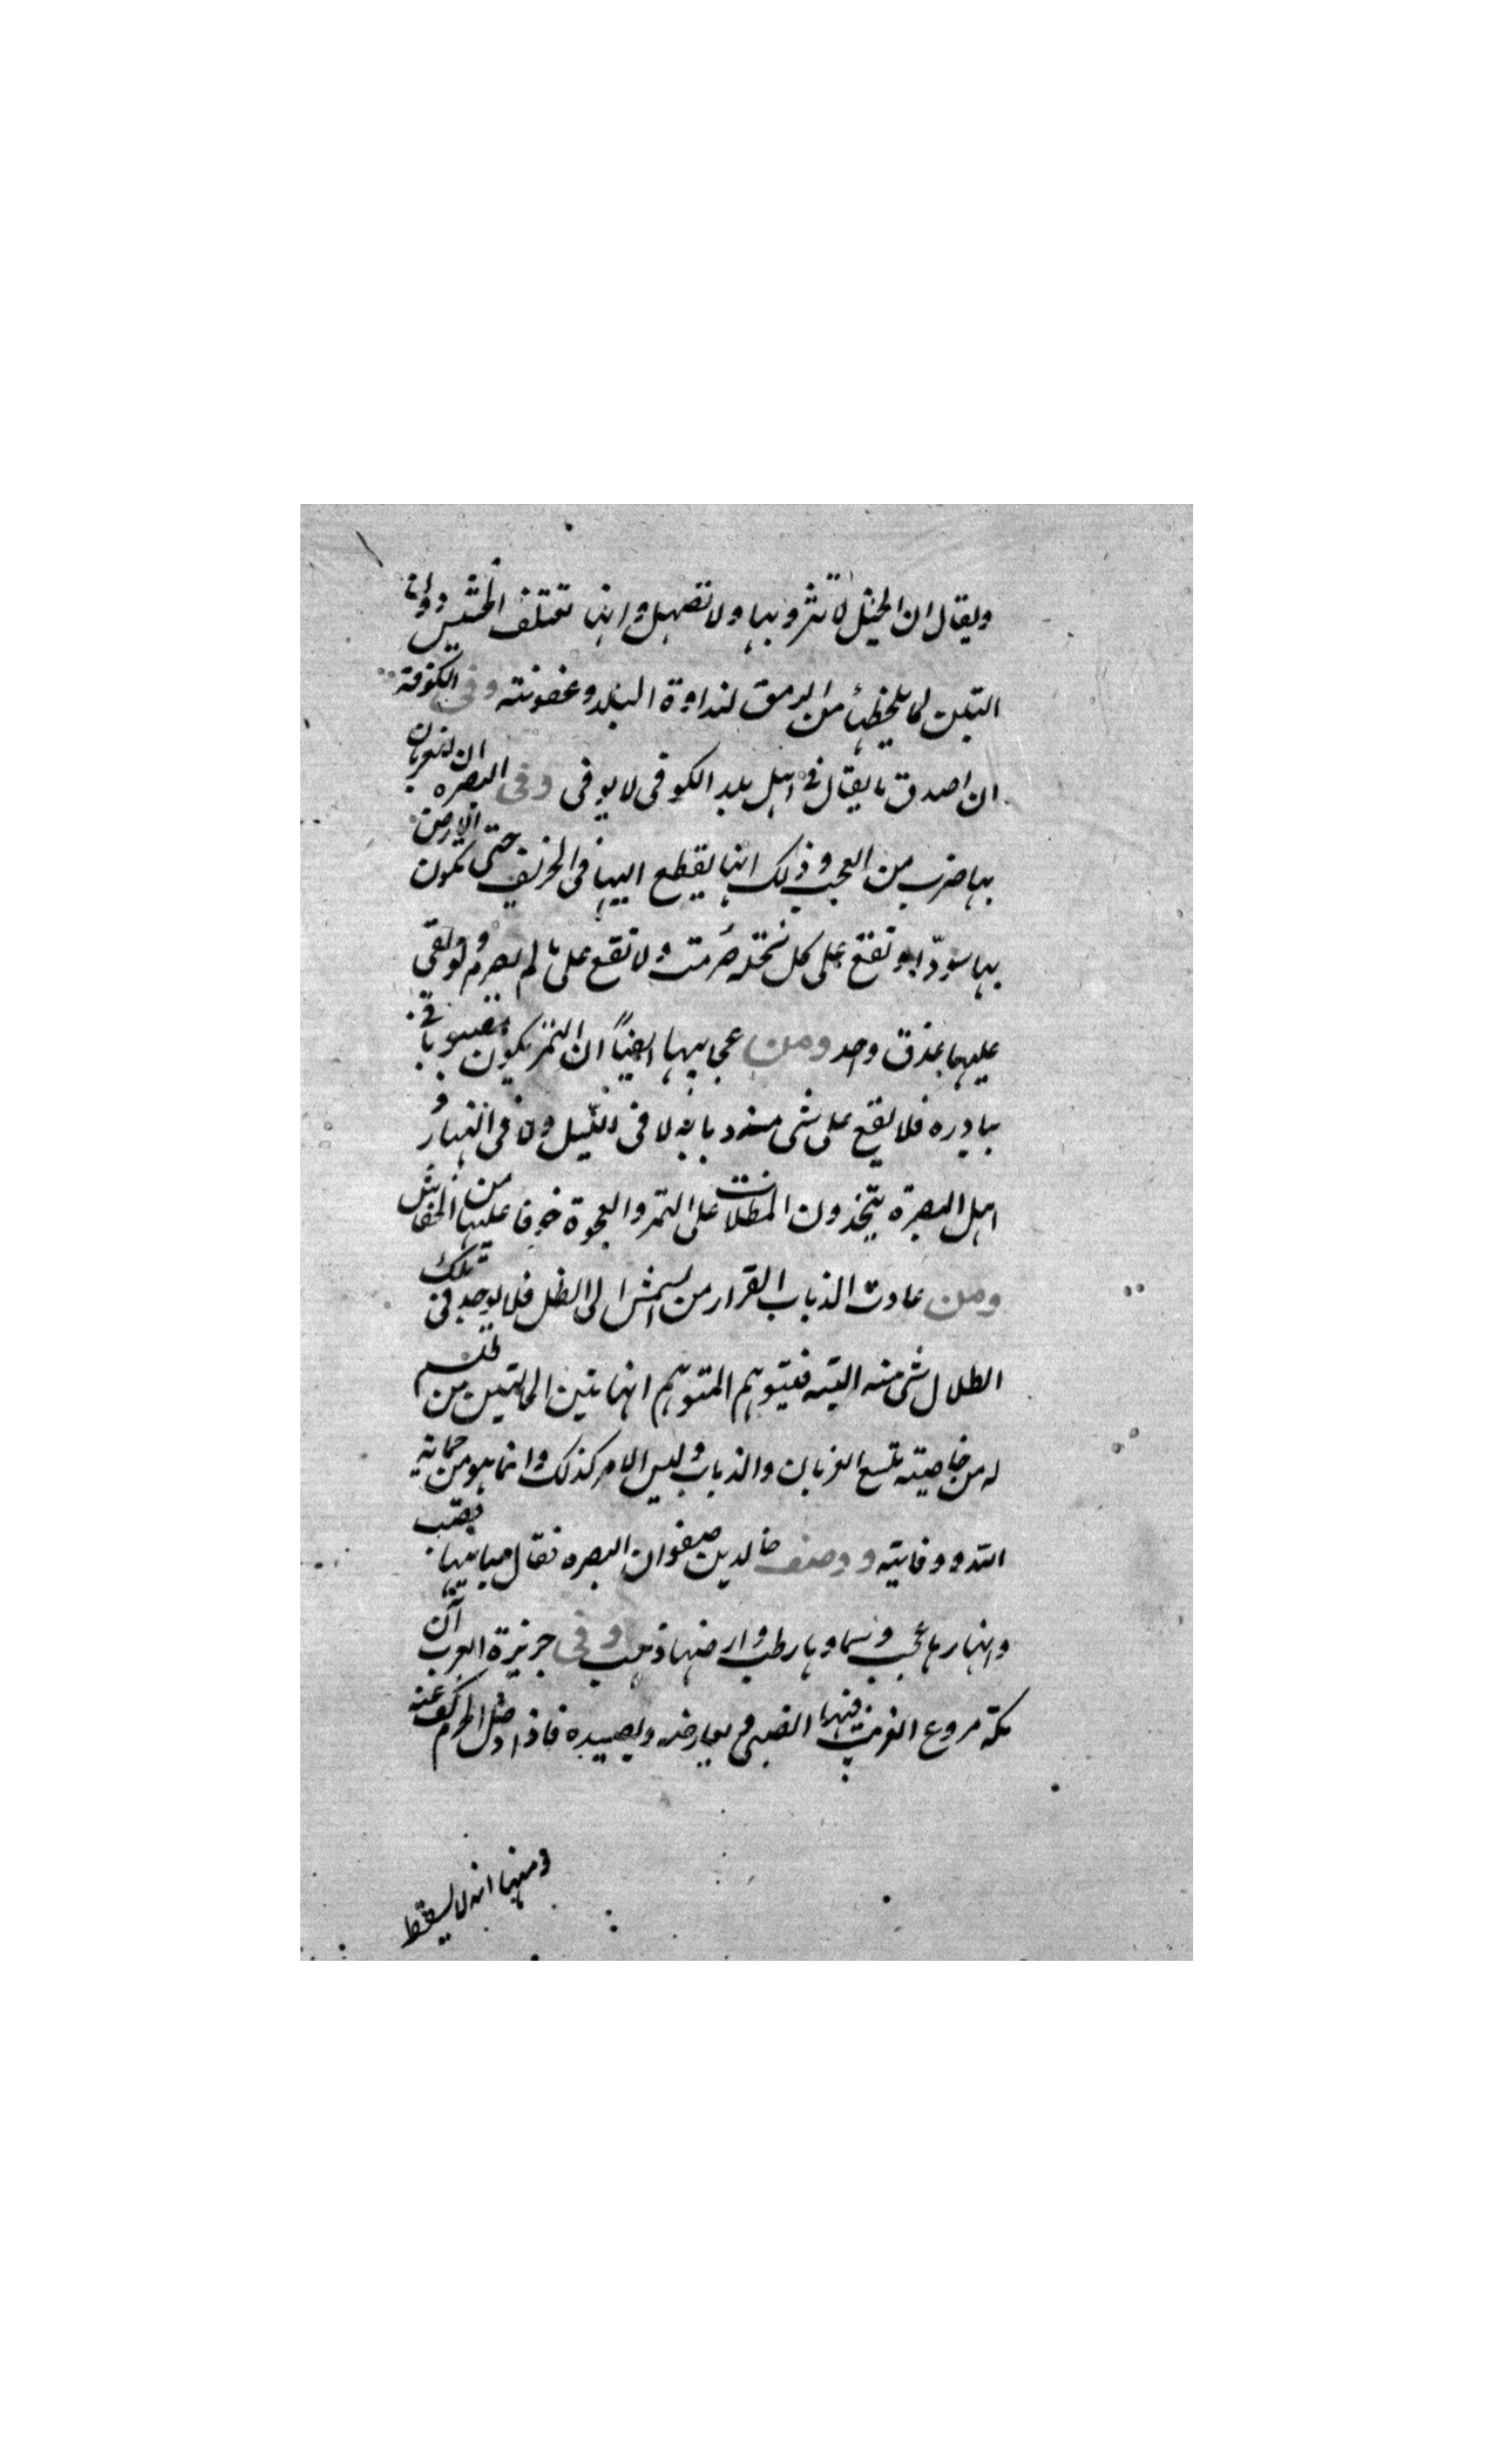 ويقال ان الخيل لا تنزو بها ولا تصهل وانها تعتلف الحشيش دون
التبن لما يلحظها من الرمق لنداوة البلد وعفونته وفى الكوفة
ان اصدق ما يقال فى اهل بلد الكوفى لا يوفى وفى البصره ان لغربان
بها ضرب من العجب وذلك انها يقطع اليها فى الخريف حتى تكون الارض
بها سودا وتقع على كل نخلة صرمت ولا تقع على ما لم يصرم ولو بقى
عليها عذق واحد ومن عجايبها ايضا ان التمر يكون مصبوبا فى
بيادره فلا يقع على شى منه ذبابه لا فى الليل ولا فى النهار و
اهل البصرة يتخذون المظلات على التمر والعجوة خوفا عليها من الخفافيش
ومن عادت الذباب القرار من الشمس الى الظل فلا يوجد فى تلك
الظلال شى منه البته فيتوهم المتوهم ان هاتين الحالتين من طلسم
له من خاصيته منع الغربان والذباب وليس الامر كذلك وانما هو من حماية
الله ووقايته ووصف خالد بن صفوان البصره فقال ميابيها قصب
وانهارها عجب وسماوها رطب وارضها ذهب وفى جزيرة العرب ان
مكة مروع الغريب فيها الضبى يعارضه ويصيده فاذا دخل الحرم كف عنه
ومنها انه لا يسقط